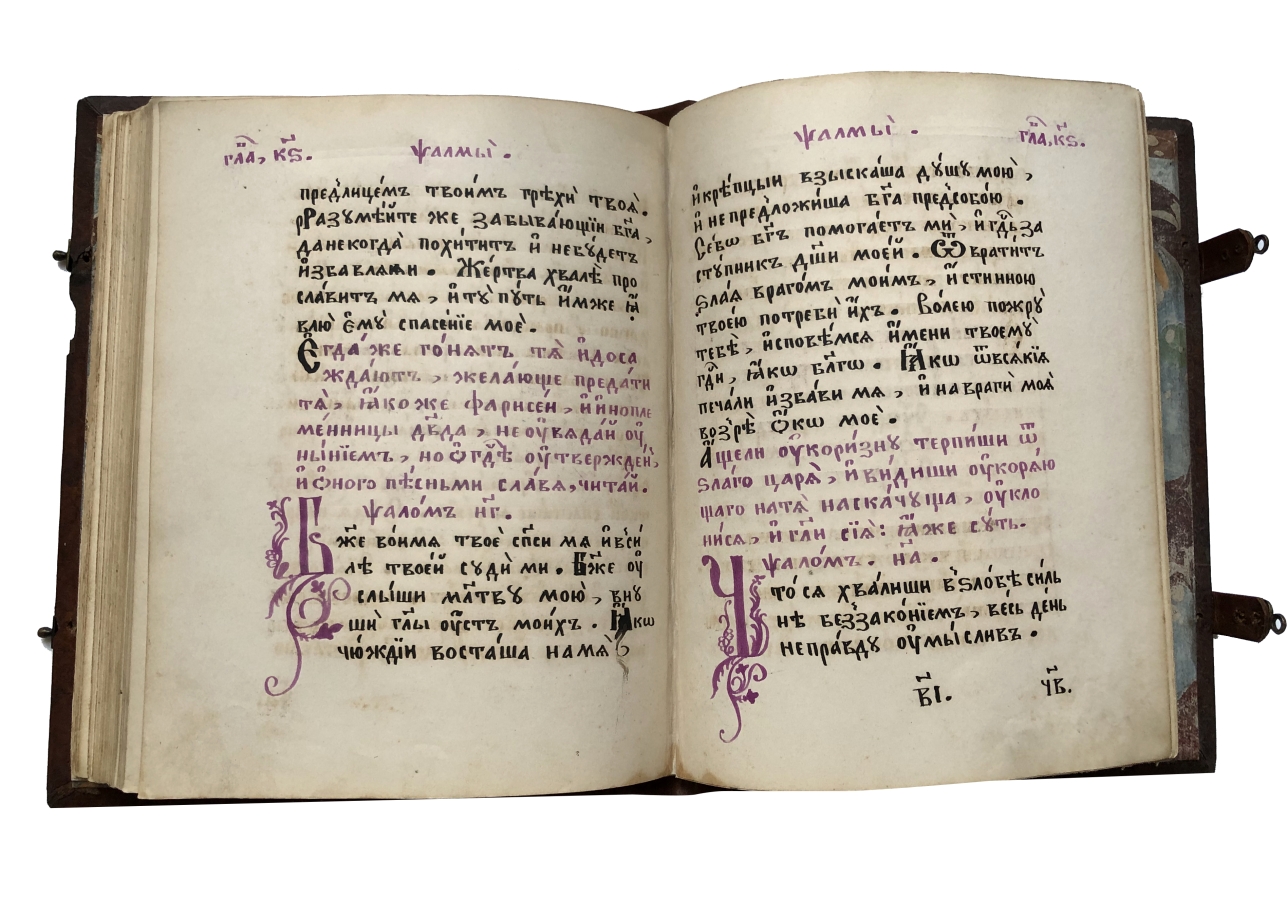 гл҃а̀, к҃ѕ. ѱалмы̀.
пред̾лицє́мъ твои́мъ грѣхѝ твоѧ̀.
рРазꙋмѣ́йте же забыва́ющїи бг҃а,
данекогда̀ похи́титъ и҆ небꙋ́детъ
и҆збавлѧѧи. Же́ртва хвалѣ̀ про
сла́витъ мѧ, и҆тꙋ̀ пꙋ́ть и҆́мже ꙗ҆
влю̀ є҆мꙋ̀ спасе́нїе моѐ.
Є҆гда́ же го́нѧтъ тѧ̀ и҆доса
жда́ютъ, жела́юще преда́ти
тѧ̀, ꙗ҆́коже фарисе́и, и҆ и҆нопле
ме́нницы дв҃да, не оу҆вѧда́й оу҆
ны́нїемъ, но ѻ҆ гдⷭ҇ѣ оу҆твержде́нъ,
и҆ ѻ҆́ного пѣ́сньми сла́вѧ, чита́й.
ѱало́мъ н҃г.
Бж҃е во́имѧ твоѐ сп҃си мѧ и҆в̾си́
лѣ твое́й сꙋди́ ми. Бж҃е оу҆
слы́ши мл҃твꙋ мою̀, внꙋ
шѝ гл҃ы оу҆стъ мои́хъ. Ꙗ҆́кѡ
чю́ждїи воста́ша намѧ̀
ѱалмы̀. гл҃а̀, к҃ѕ.
и҆крѣ́пцыи взыска́ша дꙋ́шꙋ мою̀,
и҆ непред̾ложи́ша бг҃а пред̾собо́ю.
Се́бѡ бг҃ъ помога́етъ мѝ, и҆ гдⷭ҇ь за
стꙋ́пникъ дш҃и мое́й. Ѿврати́тъ
ѕла́ѧ враго́мъ мои́мъ, и҆стинною
твое́ю потребѝ и҆́хъ. Во́лею пожрꙋ̀
тебѣ̀, и҆сповѣ́мсѧ и҆́мени твоемꙋ̀
гдⷭ҇и, ꙗ҆́кѡ бл҃гѡ. Ꙗ҆́кѡ ѿвсѧ́кїѧ
печа́ли и҆зба́ви мѧ, и҆ на врагѝ моѧ̀
воззрѣ̀ ѻ҆́кѡ моѐ.
А҆щели оу҆кори́знꙋ терпи́ши ѿ
ѕла́го царѧ̀, и҆ ви́диши оу҆корѧ́ю
щаго натѧ̀ наска́чꙋща, оу҆кло
ни́сѧ, и҆ гл҃и сїѧ̀: ꙗ҆́же сꙋ́ть.
ѱало́мъ. н҃а.
Что́ сѧ хва́лиши в̾ѕло́бѣ си́ль
нѣ беззако́нїемъ, ве́сь де́нь
непра́вдꙋ оу҆мы́сливъ.
в҃і. ч҃в.